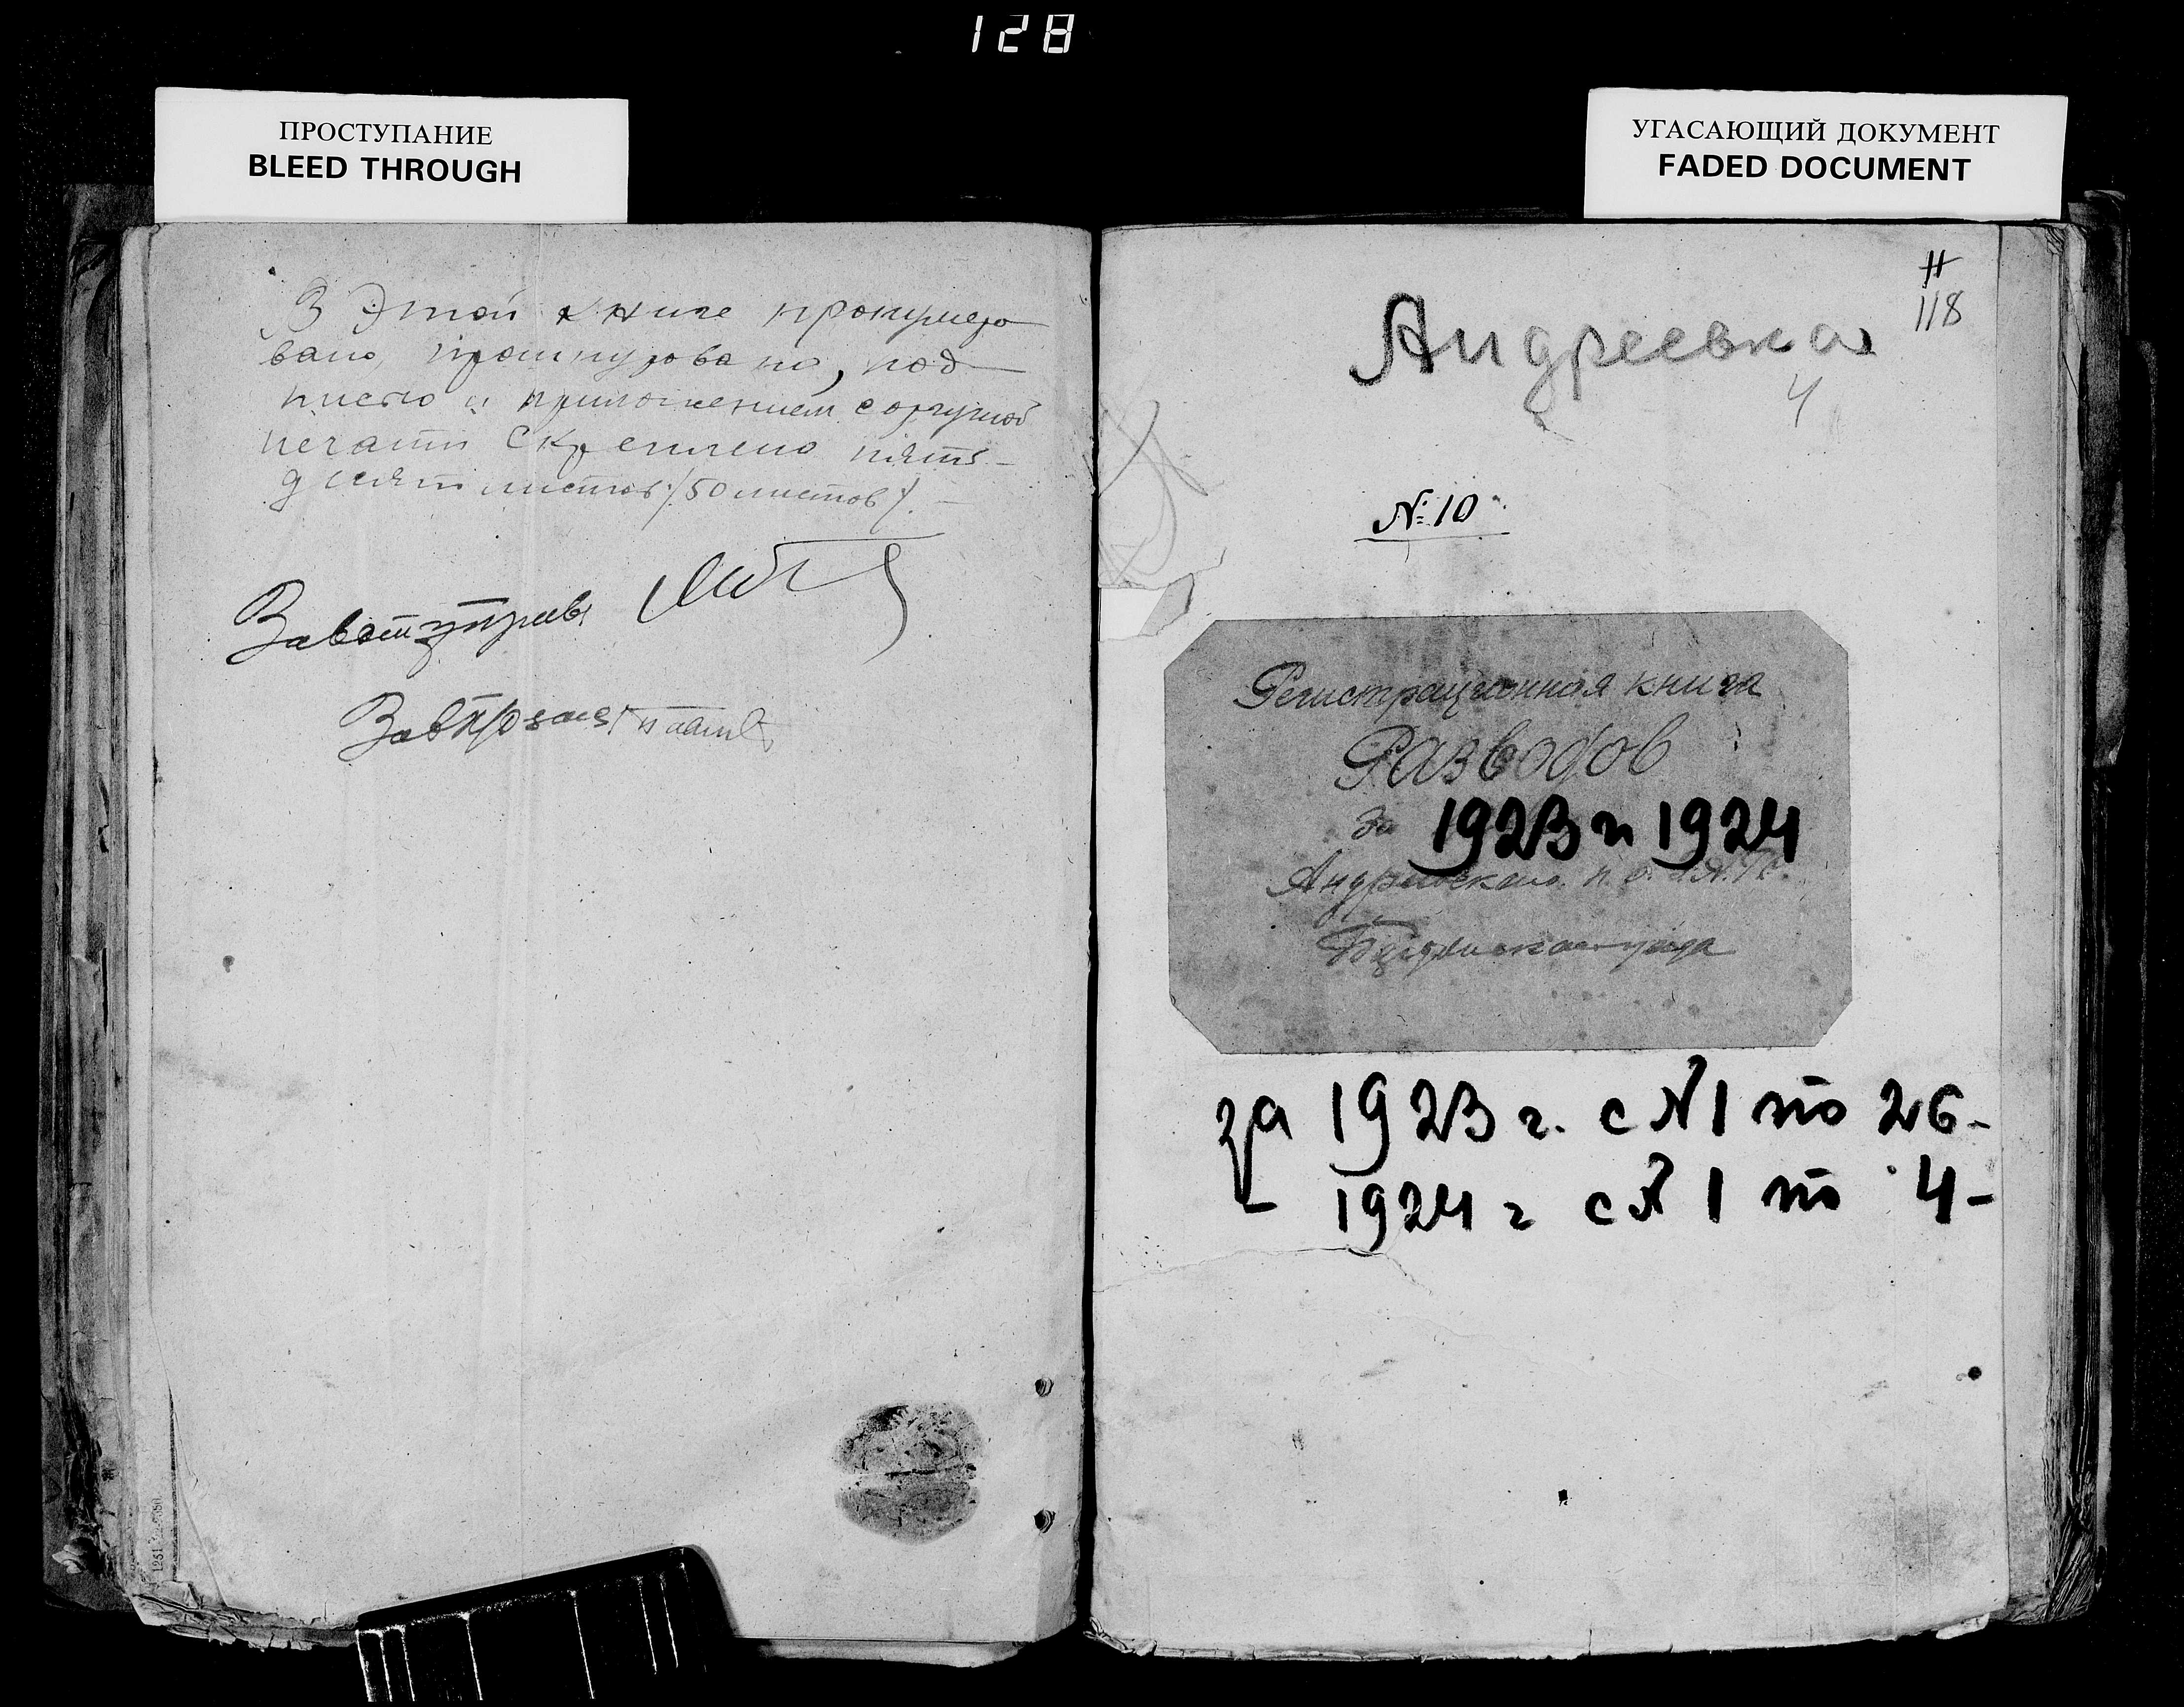 128
ПРОСТУПАНИЕ
BLEED THROUGH
УГАСАЮЩИЙ ДОКУМЕНТ
FADED DOCUMENT
В Этой книге пронумеро
вано, прошнуровано, под
писью и приложением сургучной
печати скреплено пять-
десят листов /50 листов/.
118
Андреевка
4
№ 10
Регистрационная книга
Разводов
за 1923 и 1924
Андреевского
уезда
за 1923 г. с №1 по 26-
- 1924 г с № 1 по 4-